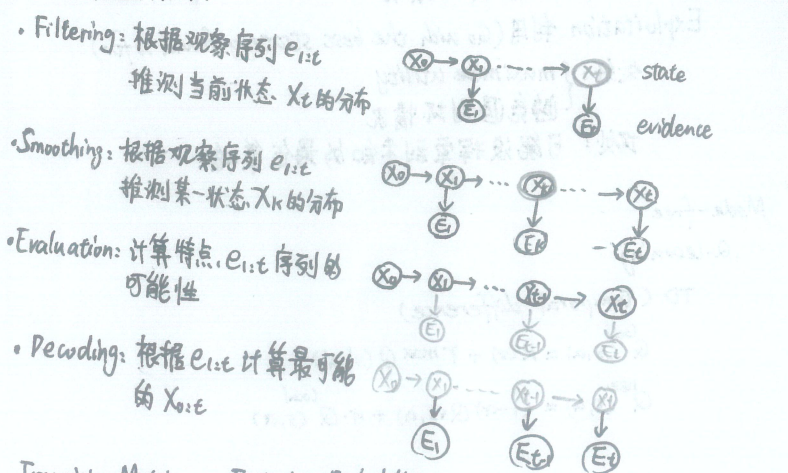 · Filtering: 根据观察序列 e1:t
推测当前状态 Xt 的分布
X0 X1 Xt state
E1 Et evidence
· Smoothing: 根据观察序列 e1:t
推测某一状态 Xk 的分布
X0 X1 Xk Xt
E1 Ek Et
· Evaluation: 计算特点 e1:t 序列的
可能性
X0 X1 Xt-1 Xt
E1 Et-1 Et
· Decoding: 根据 e1:t 计算最可能
的 X0:t
X0 X1 Xt-1 Xt
E1 Et-1 Et